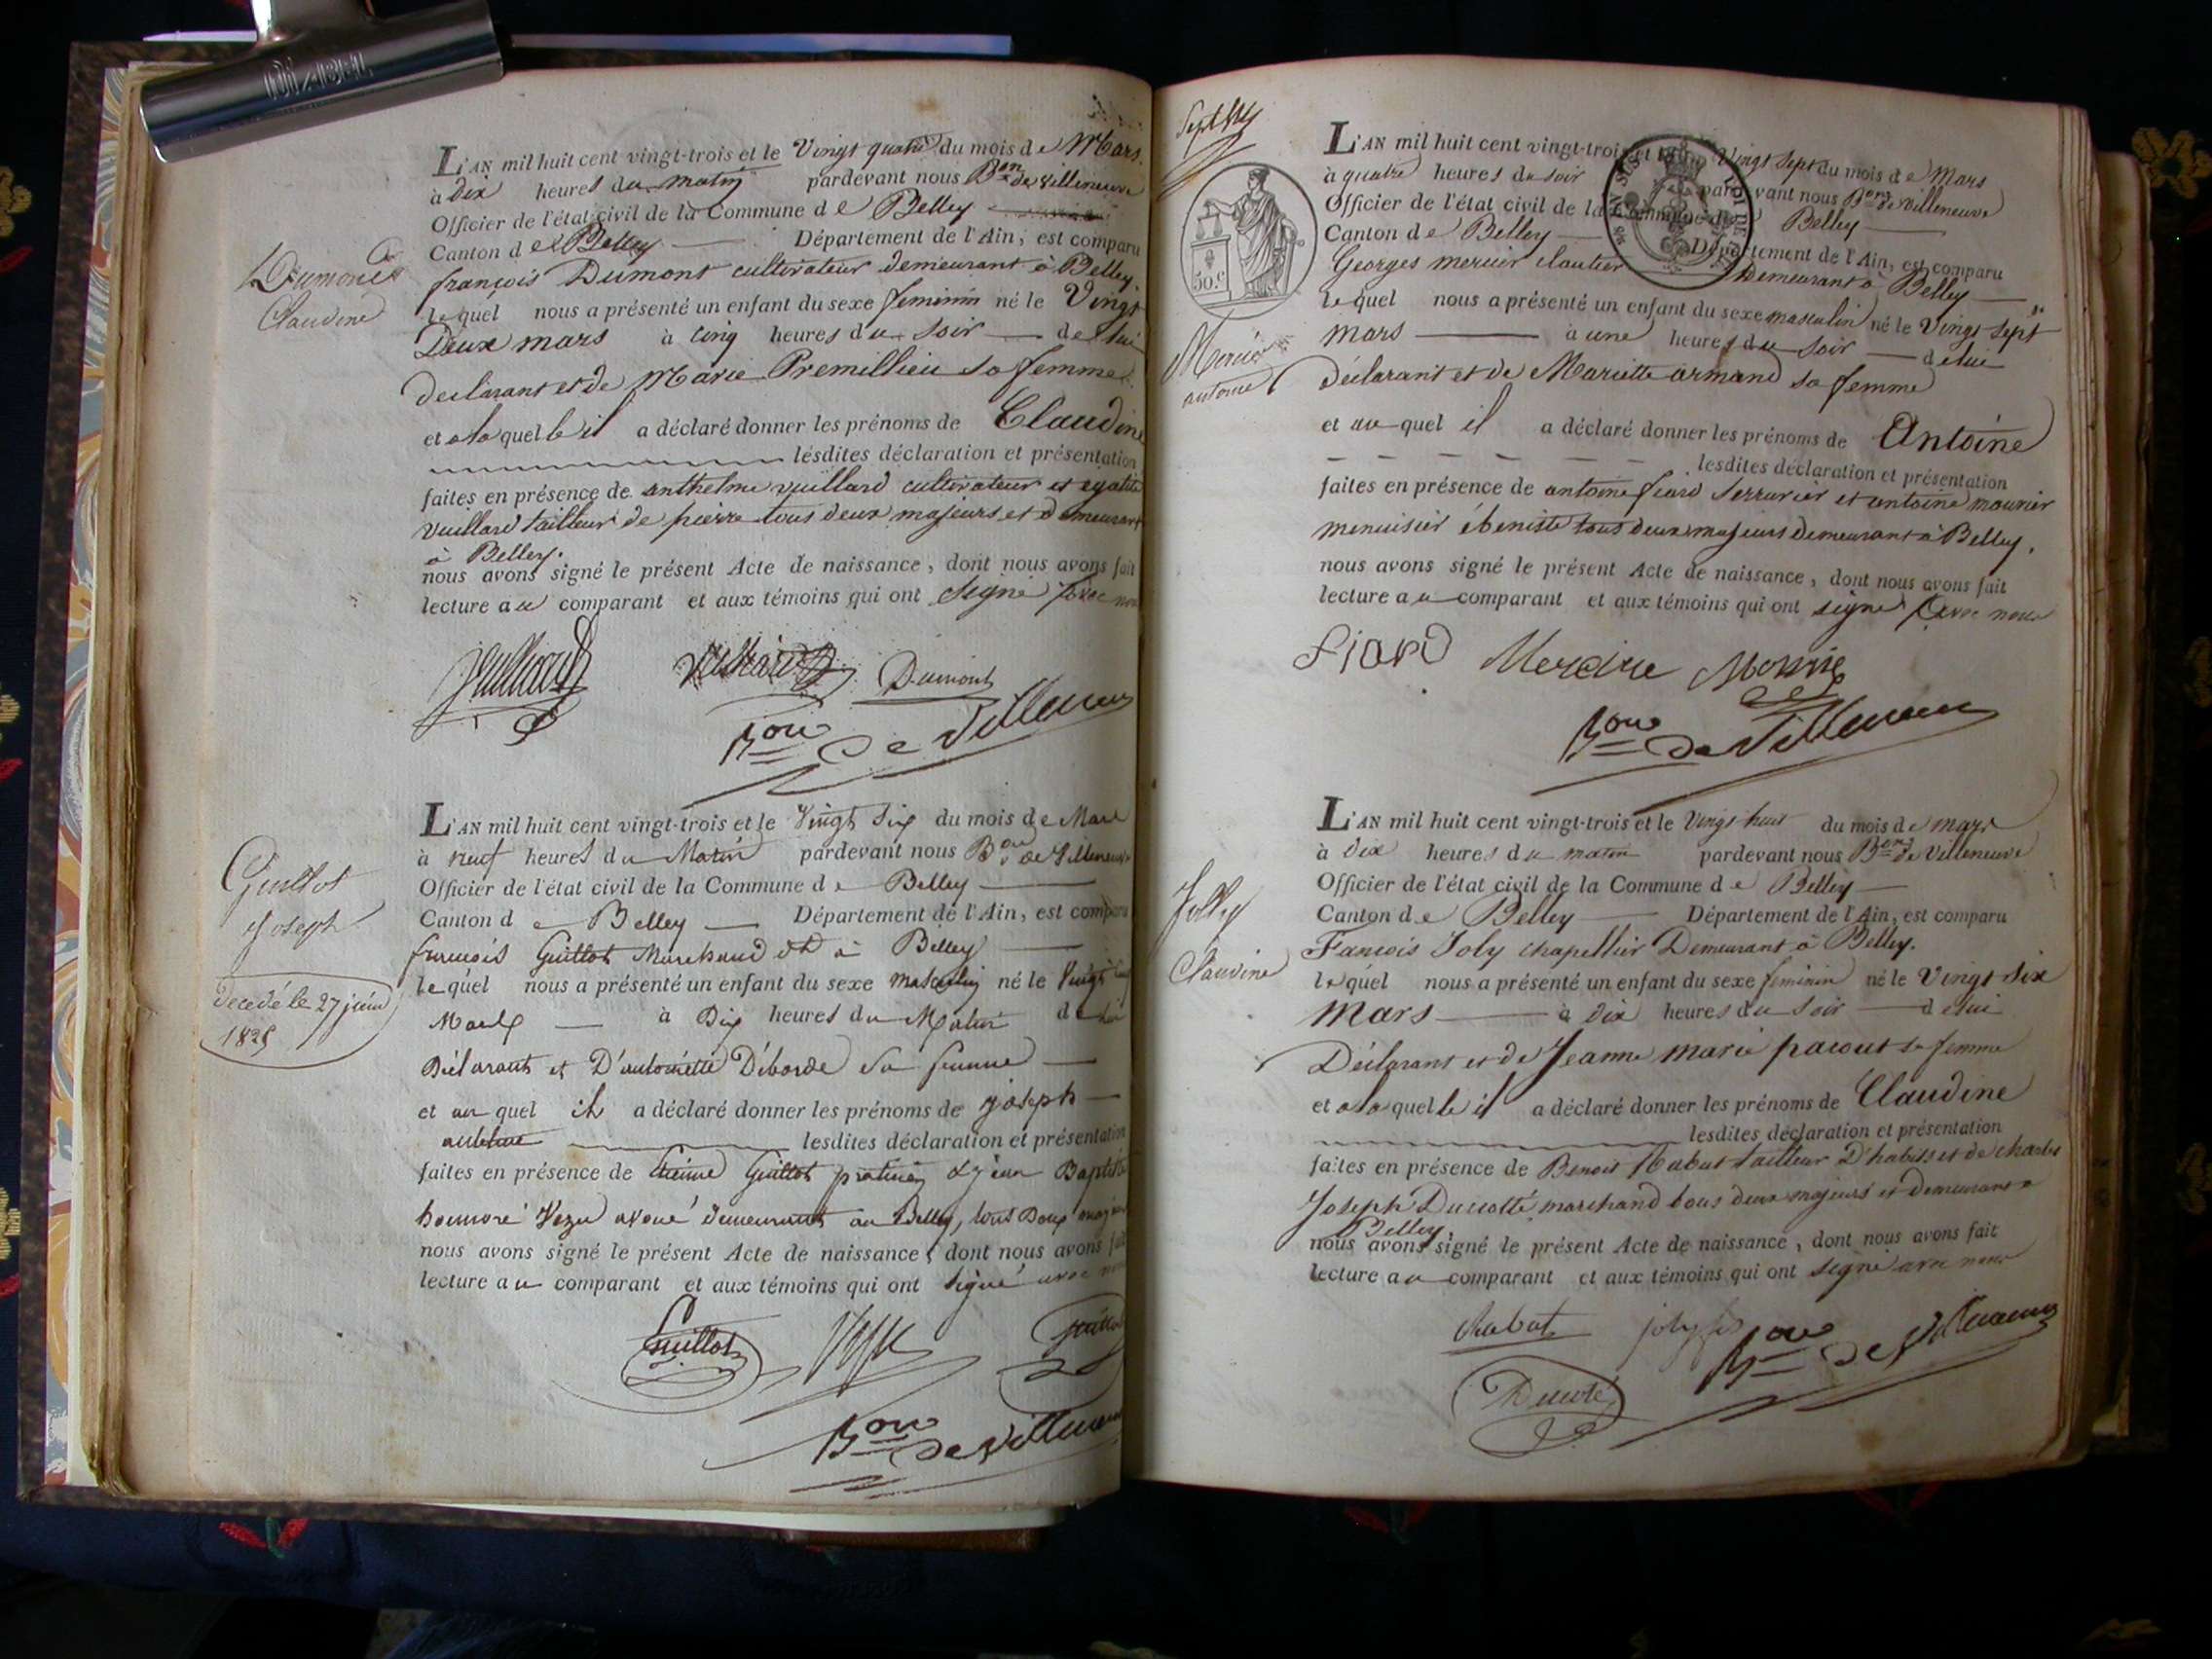 L'AN mil huit cent vingt-trois et le Vingt quatre du mois de Mars.
à Dix heures du matin pardevant nous Bon de Villeneuve
Officier de l'état civil de la Commune de Belley
Canton de Belley Département de l'Ain, est comparu
françois Dumont cultivateur demeurant à Belley.
lequel nous a présenté un enfant du sexe feminin né le Vingt
Deux mars à cinq heures du soir de lui
declarant et de Marie Premillieu sa femme.
et a la quelle il a déclaré donner les prénoms de Claudine
lesdites déclaration et présentation
faites en présence de anthelme vuillard cultivateur et
Vuillard tailleur de pierre tous deux majeurs et demeurant
à Belley.
nous avons signé le présent Acte de naissance, dont nous avons fait
lecture au comparant et aux témoins qui ont signé avec nous
Dumont
Bon de Villeneuve
Claudine
L'AN mil huit cent vingt-trois et le Vingt Six du mois de Mars
à neuf heures du Matin pardevant nous Bon de Villeneuve
Officier de l'état civil de la Commune de Belley
Canton de Belley Département de l'Ain, est comparu
françois Guillot Marchand dt à Belley
lequel nous a présenté un enfant du sexe masculin né le Vingt
Mars à Dix heures du Matin de lui
Déclarant et D'antoinette Déborde sa femme
et au quel il a déclaré donner les prénoms de joseph
anthelme lesdites déclaration et présentation
faites en présence de Guillot praticien & jean Baptiste
honnoré Vezu avoué demeurant au Belley, tous Deux majeurs
nous avons signé le présent Acte de naissance, dont nous avons fait
lecture au comparant et aux témoins qui ont signé avec nous
Guillot
Bon de Villeneuve
Guillot
Joseph
Décedé le 27 juin
L'AN mil huit cent vingt-trois et le Vingt Sept du mois de Mars
à quatre heures du soir pardevant nous Bon de Villeneuve
Officier de l'état civil de la Commune de Belley
Canton de Belley Département de l'Ain, est comparu
Georges mercier cloutier Demeurant à Belley
lequel nous a présenté un enfant du sexe masculin né le Vingt Sept
mars à une heures du soir de lui
déclarant et de Mariette armand sa femme
et au quel il a déclaré donner les prénoms de Antoine
lesdites déclaration et présentation
faites en présence de antoine fiard Serrurier et antoine mounier
menuisier ébeniste tous deux majeurs demeurant à Belley.
nous avons signé le présent Acte de naissance, dont nous avons fait
lecture au comparant et aux témoins qui ont signé avec nous
fiard
Bon de Villeneuve
50.c
Mercier
antoine
L'AN mil huit cent vingt-trois et le Vingt huit du mois de mars
à Dix heures du matin pardevant nous Bon de Villeneuve
Officier de l'état civil de la Commune de Belley
Canton de Belley Département de l'Ain, est comparu
Fancois Joly chapellier Demeurant à Belley.
lequel nous a présenté un enfant du sexe feminin né le Vingt Six
Mars à dix heures du soir de lui
Déclarant et de Jeanne marie pacout sa femme
et a la quelle il a déclaré donner les prénoms de Claudine
lesdites déclaration et présentation
faites en présence de Benoit Rabut tailleur D'habits et de charles
Joseph Ducotté marchand tous deux majeurs et demeurant a
Belley.
nous avons signé le présent Acte de naissance, dont nous avons fait
lecture au comparant et aux témoins qui ont signé avec nous
Rabut joly fils
Bon de Villeneuve
Ducoté
Jolly
Claudine